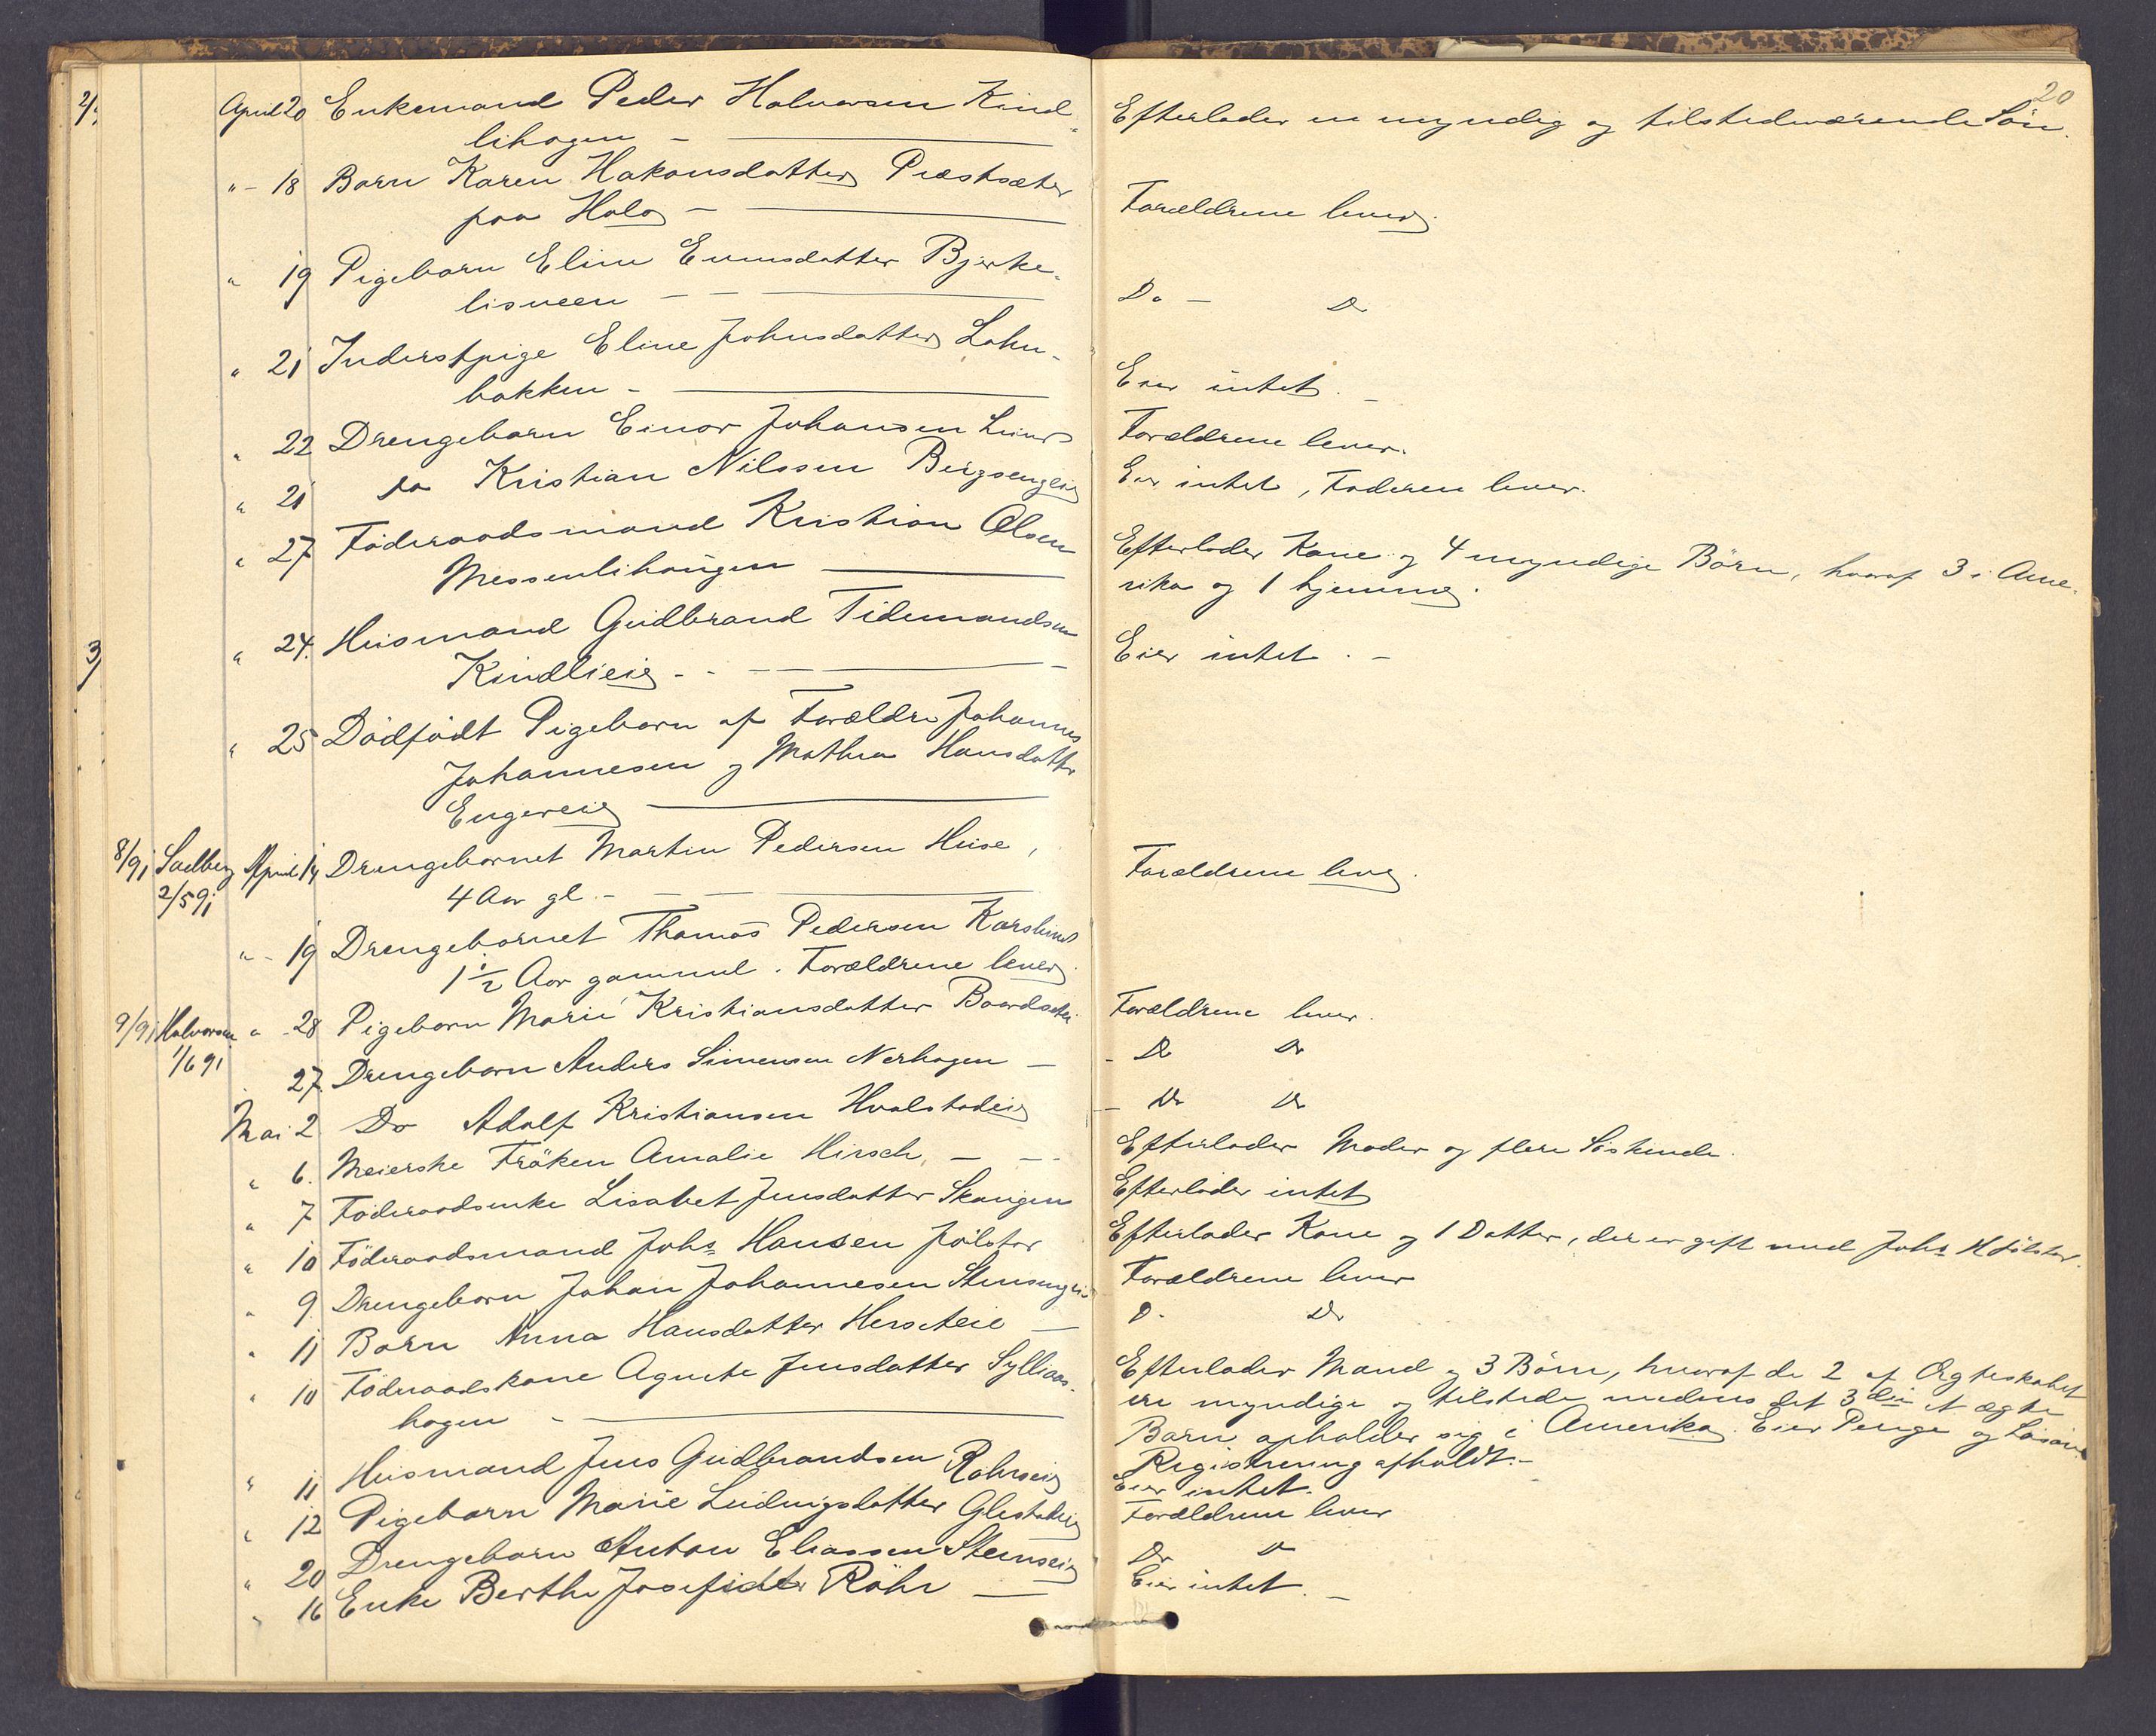 20
April 20 Enkemand Peder Halvorsen Kind-
lihagen - Efterlader en myndig og tilstedeværende Søn.
" - 18 Barn Karen Hakonsdatter Præstsæter
paa Hola - Forældrene lever.
" 19 Pigebarn Eline Evensdatter Bjerke-
lisveen - - Do - Do
" 21 Inderstpige Eline Johnsdatter Lohn-
bakken - Eier intet. -
" 22 Drengebarn Einar Johansen Lund Forældrene lever.
" 21 do Kristian Nilssen Bergsengeie Eier intet, Faderen lever.
" 27 Føderaadsmand Kristian Olsen
Messenlihaugen Efterlader Kone og 4 myndige Børn, hvoraf 3 i Ame-
rika og 1 hjemme.
3/ " 24. Husmand Gudbrand Tidemandsen
Kindlieie - Eier intet. -
" 25 Dødfødt Pigebarn af Forældre Johannes
Johannesen og Mathea Hansdatter
Engereie
8/91 Sudberg April 14 Drengebarnet Martin Pedersen Huse,
2/5 91 4 Aar gl. - Forældrene lever.
" - 19 Drengebarnet Thomas Pedersen Karslund
1 1/2 Aar gammel. Forældrene lever.
9/91 Halvorsen " 28 Pigebarn Marie Kristiansdatter Baardseter Forældrene lever.
1/6 91 27. Drengebarn Anders Simensen Nerhagen - - Do Do
Mai 2 Do Adolf Kristiansen Hvalstadeie - Do Do
" 6. Meierske Frøken Amalie Hirsch, - - Efterlader Moder og flere Søskende.
" 7 Føderaadsenke Lisabet Jensdatter Skaugen Efterlader intet
" 10 Føderaadsmand Johs Hansen Jølstad Efterlader Kone og 1 Datter, der er gift med Johs H Jølstad.
" 9 Drengebarn Johan Johannesen Stensengeie Forældrene lever
" 11 Barn Anna Hansdatter - D. Do
" 10 Føderaadskone Agnete Jensdatter Sylliaas-
hagen - Efterlader Mand og 3 Børn, hvoraf de 2 af Ægteskabet
ere myndige og tilstede medens det 3die et ægte
Barn opholder sig i Amerika. Eier Penge og Løsøre
Registrering afholdt. -
" 11 Husmand Jens Gudbrandsen Røhrseie Eier intet.
" 12 Pigebarn Marie Ludvigsdatter Glestadeie Forældrene lever
" 20 Drengebarn Anton Eliassen Stenseie Do Do
" 16 Enke Berthe Josefsdtr Röhr - Eier intet. -